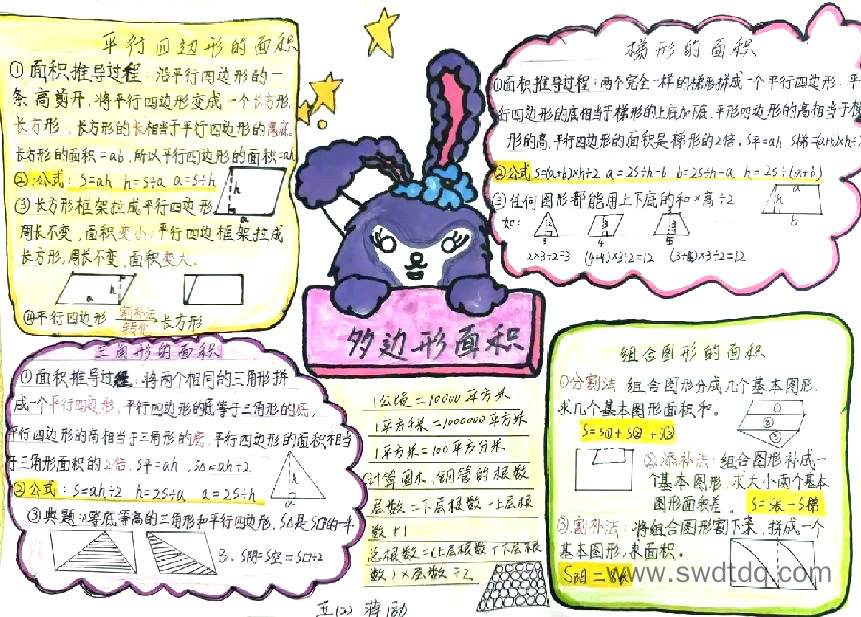 平行四边形的面积
①面积推导过程：沿平行四边形的一
条高剪开，将平行四边形变成一个长方形，
长方形，长方形的长相当于平行四边形的
长方形的面积=ab，所以平行四边形的面积=ah
②公式：S=ah h=S÷a a=S÷h
③长方形框架拉成平行四边形，
周长不变，面积变小；平行四边框架拉成
长方形，周长不变，面积变大。
h
a
h
a
④平行四边形 割补法 长方形
转化
三角形的面积
①面积推导过程：将两个相同的三角形拼
成一个平行四边形，平行四边形的底等于三角形的底，
平行四边形的高相当于三角形的底，平行四边形的面积相当
于三角形面积的2倍，S平=ah，S△=ah÷2
②公式：S=ah÷2 h=2S÷a a=2S÷h
h
a
③典题：①等底等高的三角形和平行四边形，
S阴=S空=S□÷2
多边形面积
1公顷=10000平方米
1平方千米=1000000平方米
1平方米=100平方分米
计算圆木、钢管的根数
层数=下层根数-上层根
数+1
总根数=(上层根数+下层根
数)×层数÷2
梯形的面积
①面积推导过程：两个完全一样的梯形拼成一个平行四边形，平
行四边形的底相当于梯形的上底加下底，平形四边形的高相当于梯
形的高，平行四边形的面积是梯形的2倍，S平=ah S梯=(a+b)×h÷2
②公式S=(a+b)×h÷2 a=2S÷h-b b=2S÷h-a h=2S÷(a+b)
③任何图形都能用上下底的和×高÷2
如：
a
h
b
2×3÷2=3 (4+4)×3÷2=12
组合图形的面积
①分割法：组合图形分成几个基本图形，
求几个基本图形面积和。
S=S①+S②+S③
①
②
③
②添补法：组合图形补成一
个基本图形，求大小两个基本
图形面积差。 S=S长-S梯
③割补法：将组合图形割下来，拼成一个
基本图形，求面积。
S阴=
www.swdtdq.com